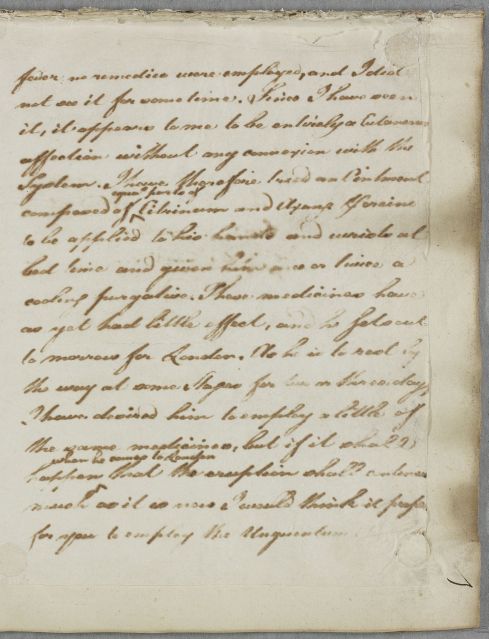 fever no remedies were employed, and I did
not see it for some time. Since I have seen
it, it appears to me to be entirely a Cutaneous
affection without any connexion with the
System. I have therefore tried an Ointment
equal parts of
composed of Citrinum and
to be applied to his hands and wrists at
bed time and given him once or twice a
cooling purgative. These medicines have
as yet had little effect, and he sets out
to morrow for London. As he is to rest by
the way at some Stages for two or three days
I have desired him to employ a little of
the same medicines, but if it shall
when he comes to London
happen that the eruption shall
much as it is now I would think it
for you to employ the Unguentum